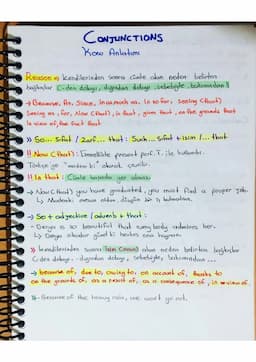 CONJUNCTIONS
Konu Anlatımı
Reason → kendilerinden sonra cümle alan neden belirten
bağlaçlar (-den dolayı, -dığından dolayı, sebebiyle, bakımından)
→ Because, As, Since, in as much as, in so far, seeing (that)
seeing as, for, Now (that), in that, given that, on the grounds that
in view of the fact that
» So... sıfat / Zarf... that : Such... sıfat + isim /... that
!! Now (that) : Present perf. T. ile kullanılır.
!! In that : Cümle başında yer almaz.
→ Now (that) you have graduated, you must find a proper job.
↳ Mademki mezun oldun,
→ So + adjective / adverb + that :
- Derya is so beautiful that every body admires her.
↳ Derya o kadar güzel ki herkes ona hayran.
» kendilerinden sonra isim alan neden belirten bağlaçlar
(-den dolayı, -dığından dolayı, sebebiyle, bakımından ...
→ because of, due to, owing to, on account of, thanks to
on the grounds of, as a result of, as a consequence of, in view of.
» - Because of the heavy rain, we won't go out.